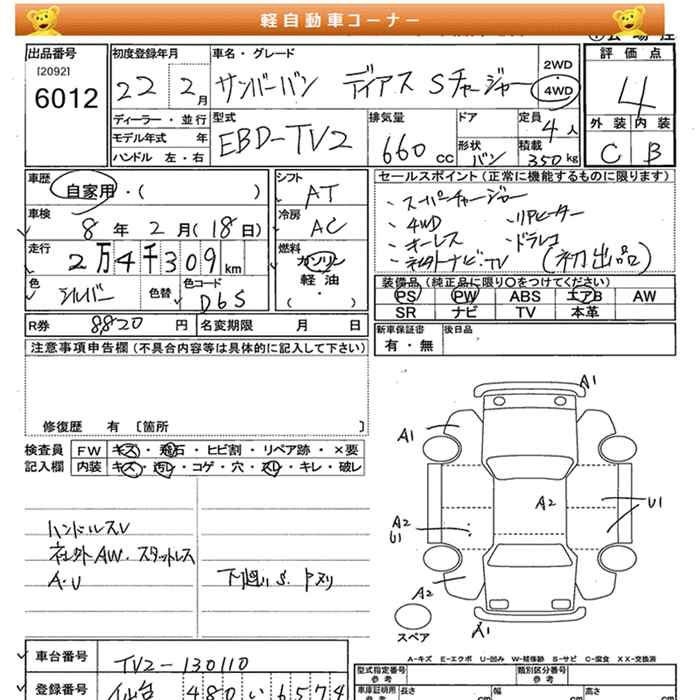 軽自動車コーナー
出品番号
[2092]
6012
初度登録年月
22 2月
ディーラー・並行
モデル年式 年
ハンドル 左・右
車名・グレード
サンバーバン ディアス Sチャージャー
2WD
4WD
型式
EBD-TV2
排気量
660cc
ドア
形状
バン
定員
4人
積載
350kg
評価点
4
外装 内装
C B
車歴
自家用・( )
車検
8年2月(18日)
走行
2万4千309km
色
シルバー
色替
色コード
D6S
シフト
AT
冷房
AC
燃料
ガソリン
軽油
( ・ )
R券 8820円
名変期限 月 日
セールスポイント(正常に機能するものに限ります)
・スーパーチャージャー
・4WD ・リアヒーター
・キーレス ・ドラレコ
・社外ナビ・TV (初出品)
装備品(純正品に限り○をつけてください)
PS PW ABS エアB AW
SR ナビ TV 本革
新車保証書
有・無
後日品
注意事項申告欄(不具合内容等は具体的に記入して下さい)
修復歴 有 [箇所 ]
検査員
記入欄
FW キズ・飛石・ヒビ割・リペア跡・×要
内装 キズ・汚レ・コゲ・穴・スレ・キレ・破レ
ハンドルスレ
社外AW・スタットレス
A・U
下廻りS・Pヌリ
A1
A1
A2
U1
A2
U1
A2
A1
スペア
A-キズ E-エクボ U-凹み W-補修跡 S-サビ C-腐食 XX-交換済
車台番号
TV2-130110
登録番号
仙台 480い6574
型式指定番号
参考
類別区分番号
参考
車庫証明用
参考
長さ
cm
幅
cm
高さ
cm